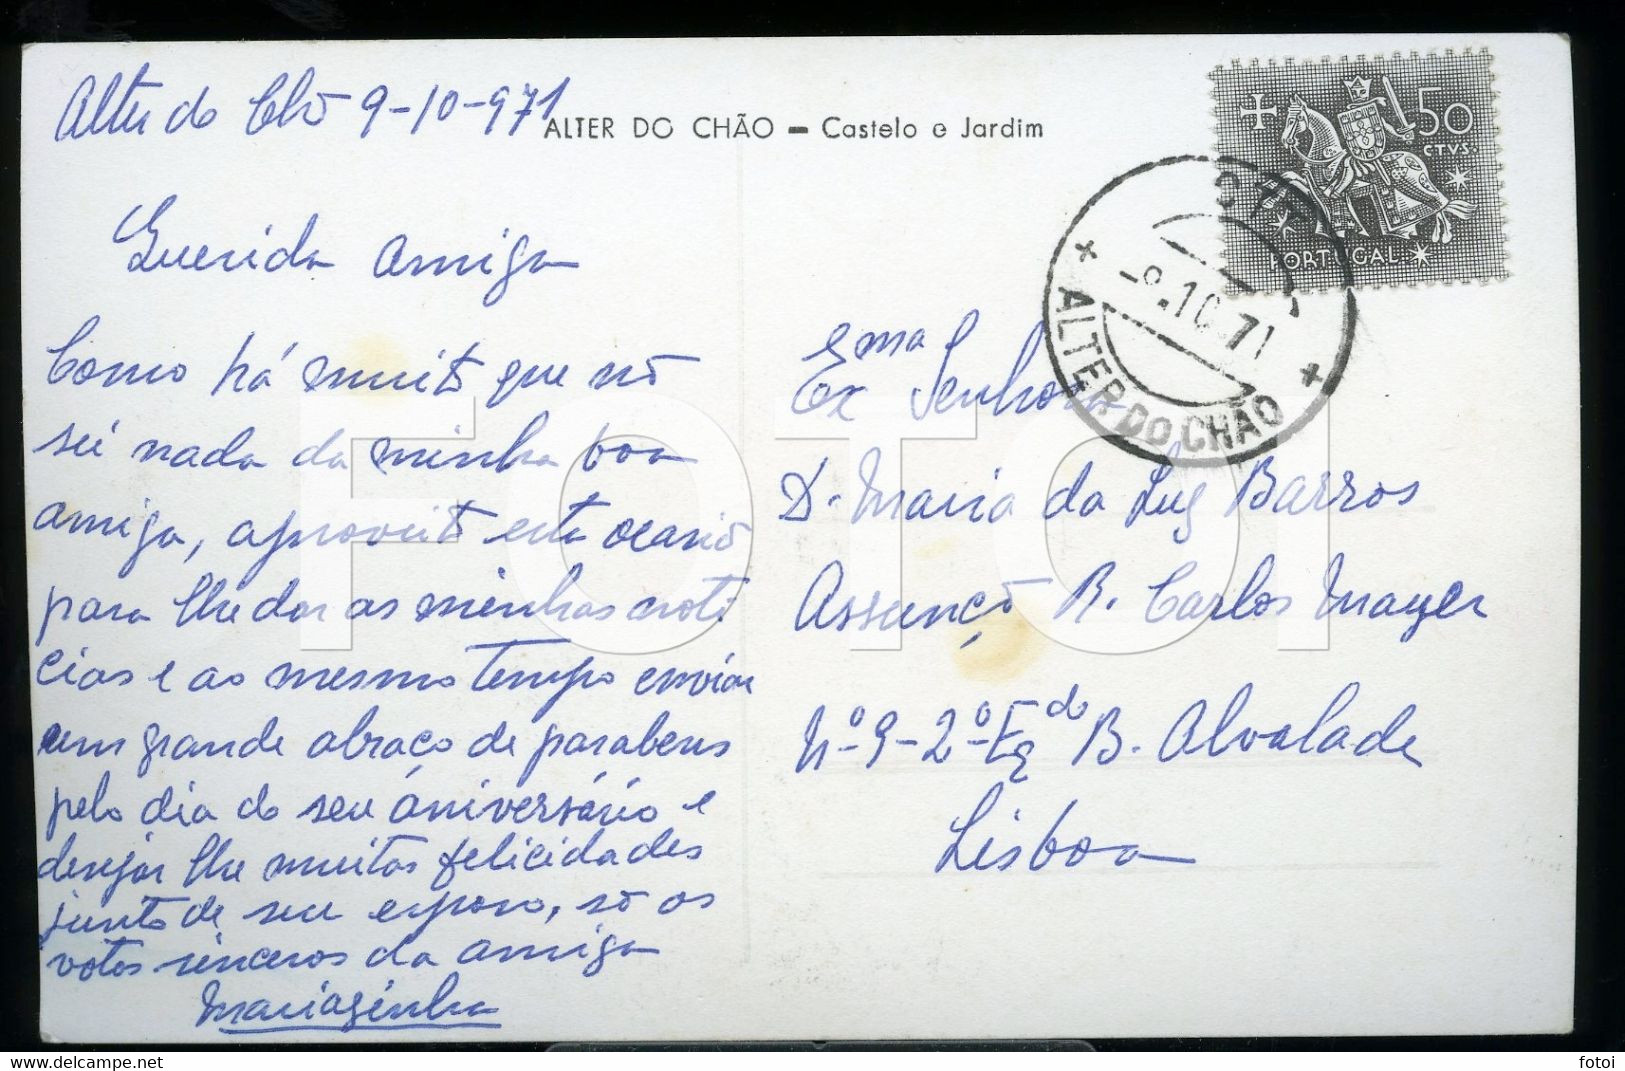 Alter do Chão 9-10-971
ALTER DO CHÃO - Castelo e Jardim
50
CTVS.
PORTUGAL
CTT
-9.10.71
ALTER DO CHÃO
Querida amiga
Como há muito que nõ
sei nada da minha boa
amiga, aproveito esta ocasiõ
para lhe dar as minhas noti
cias e ao mesmo tempo enviar
um grande abraço de parabens
pelo dia do seu aniversário e
desejar lhe muitas felicidades
junto de seu esposo, sõ os
votos sinceros da amiga
Mariazinha
Exma Senhora
D. Maria da Luz Barros
Assunçõ R. Carlos Mayer
Nº-9-2º-Eqdo B. Alvalade
Lisboa
FOTOI
delcampe.net
fotoi